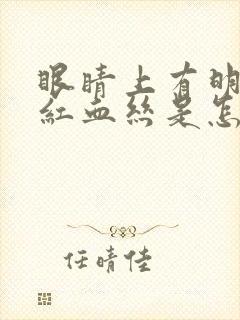 眼睛上有明
红血丝是怎
任晴佳